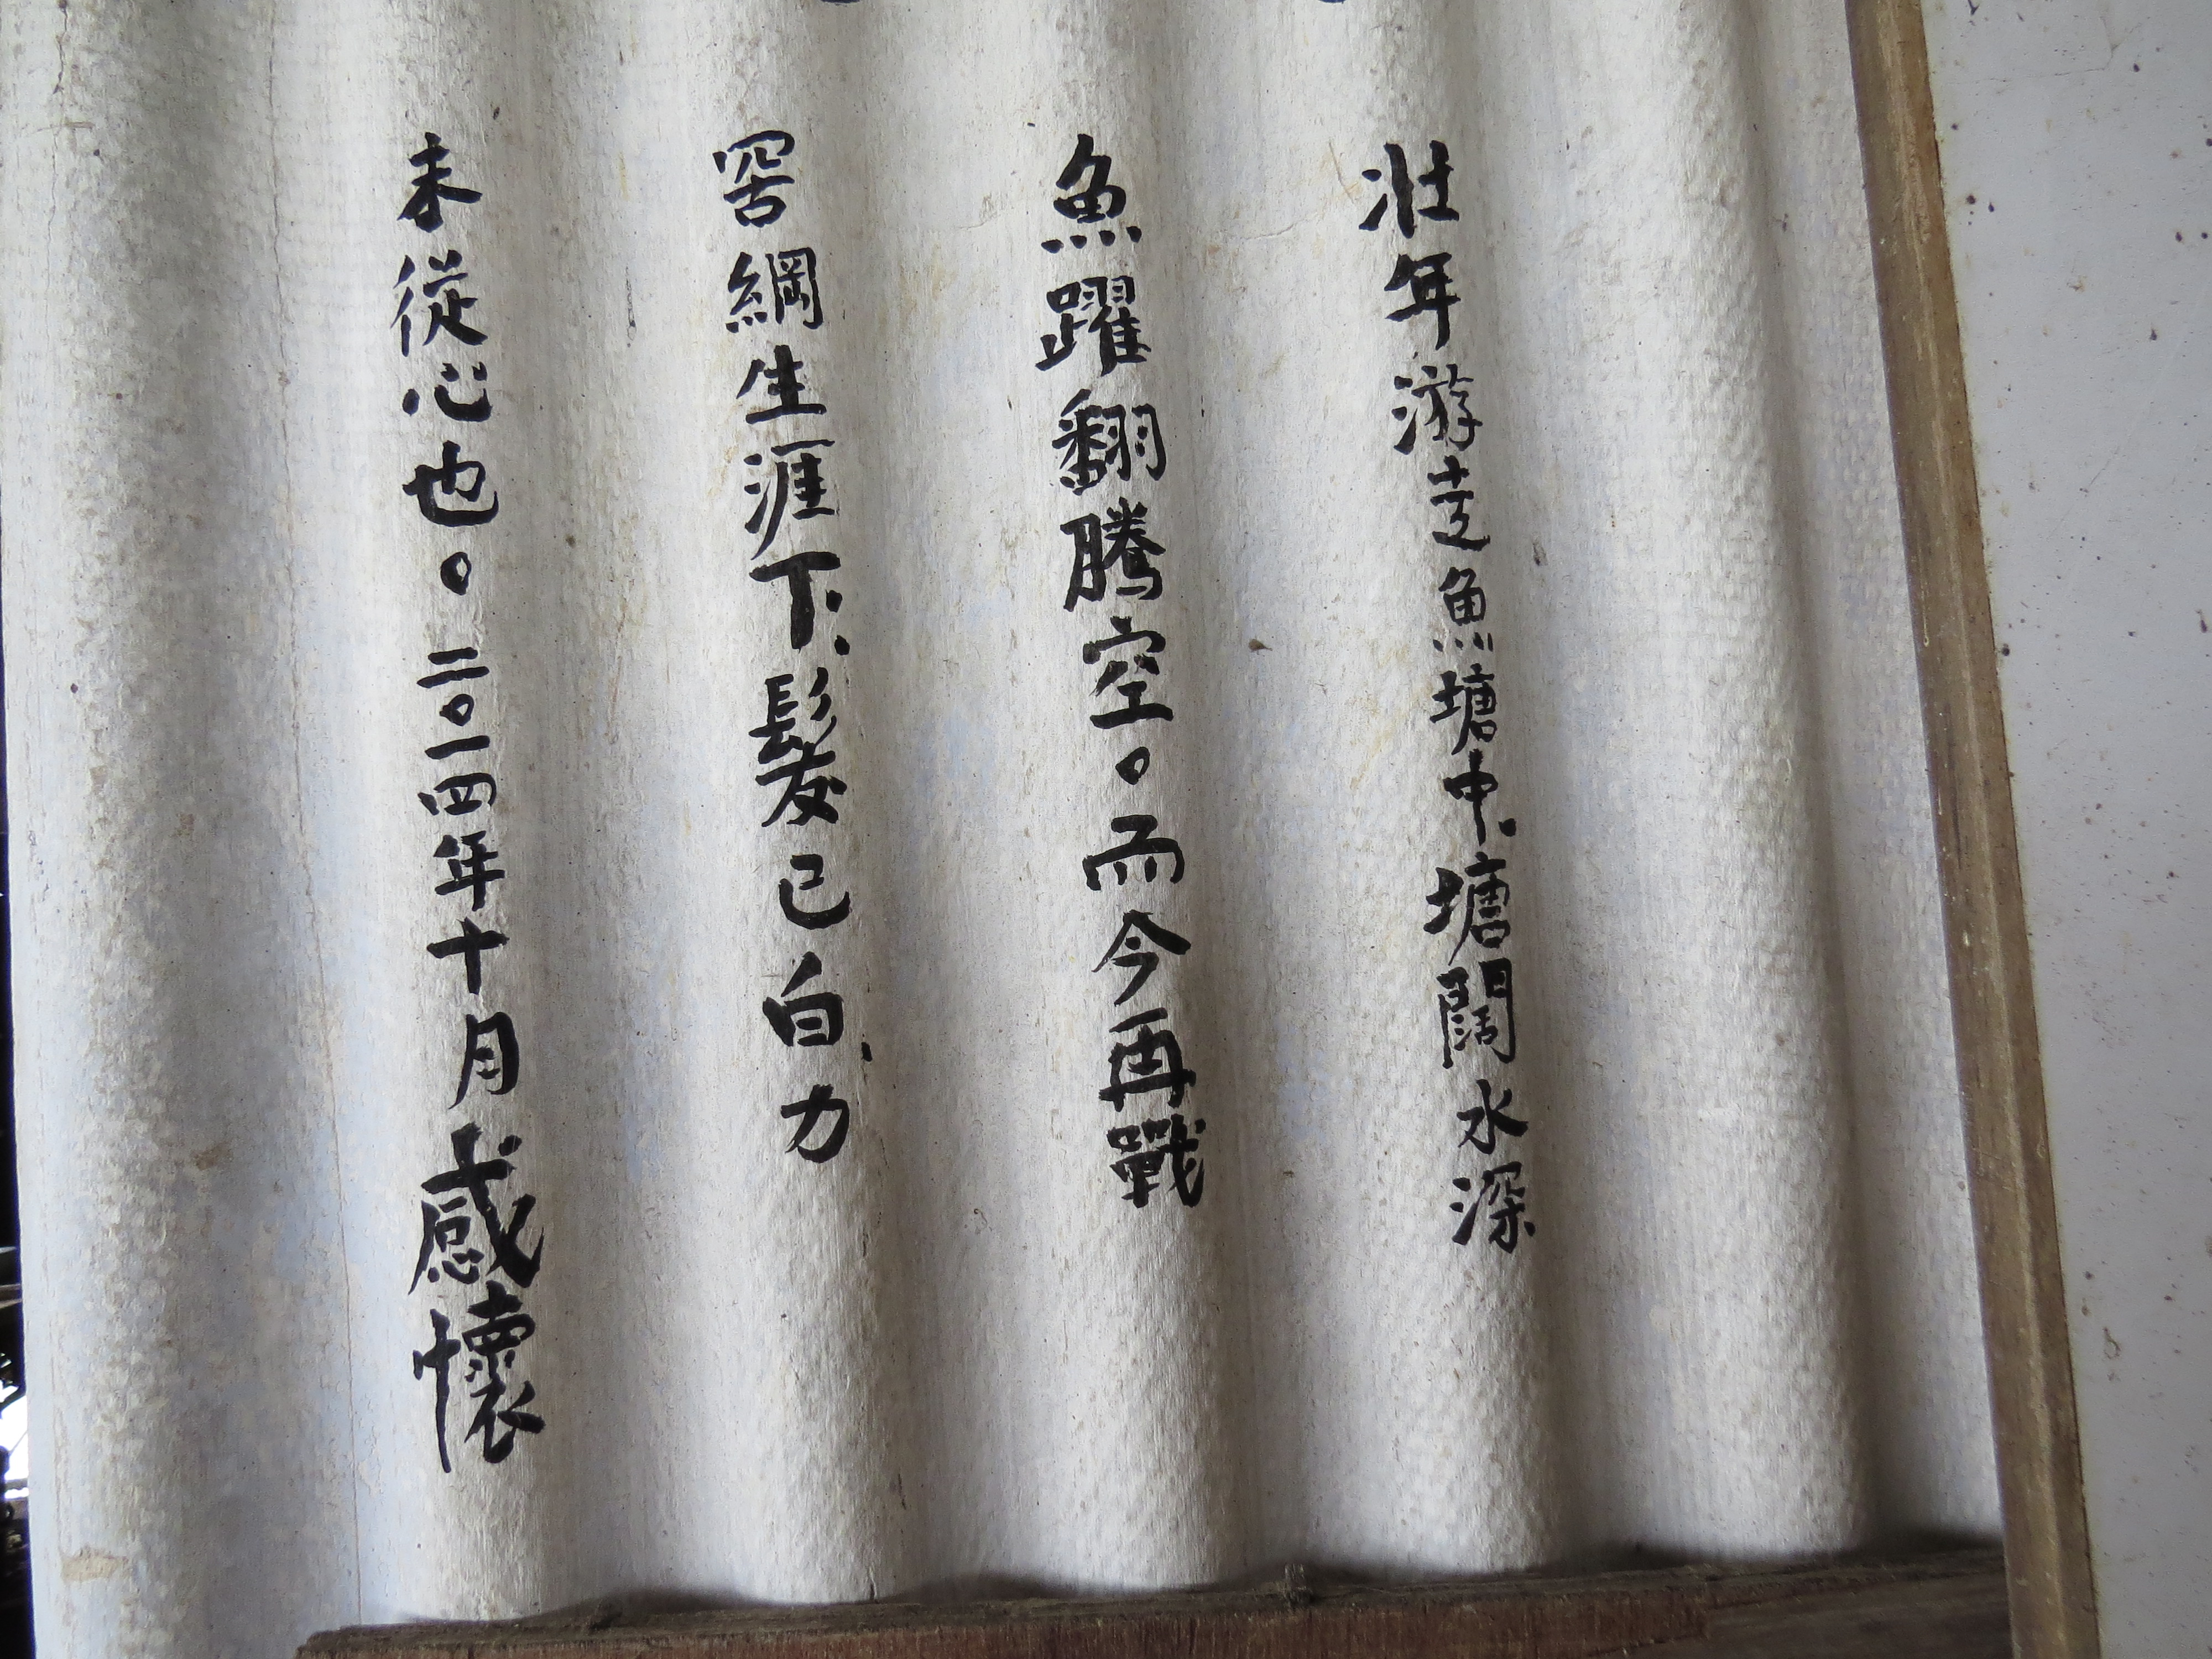 壯年游走魚塘中、塘闊水深
魚躍翻騰空。而今再戰
罟網生涯下、髮已白、力
未從心也。二〇一四年十月感懷